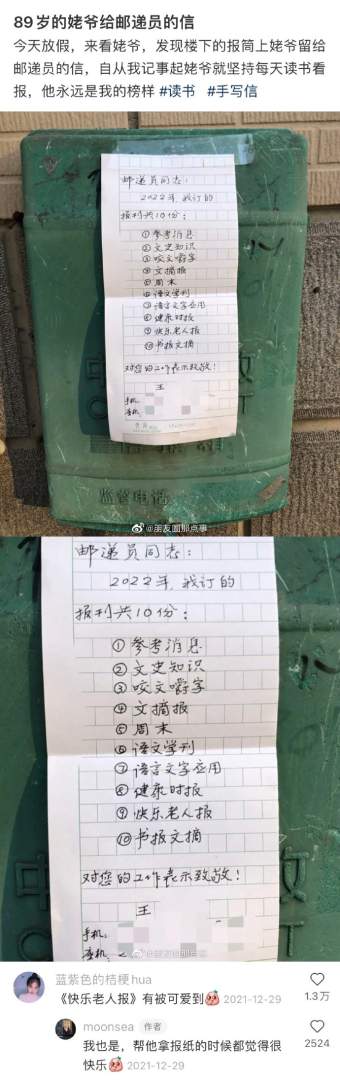 89岁的姥爷给邮递员的信
今天放假，来看姥爷，发现楼下的报筒上姥爷留给
邮递员的信，自从我记事起姥爷就坚持每天读书看
报，他永远是我的榜样 #读书 #手写信
邮递员同志：
2022年，我订的
报刊共10份：
①参考消息
②文史知识
③咬文嚼字
④文摘报
⑤周末
⑥语文学刊
⑦语言文字应用
⑧健康时报
⑨快乐老人报
⑩书报文摘
对您的工作表示致敬！
王
手机：
手机：
监督电话
@朋友圈那点事
邮递员同志：
2022年，我订的
报刊共10份：
①参考消息
②文史知识
③咬文嚼字
④文摘报
⑤周末
⑥语文学刊
⑦语言文字应用
⑧健康时报
⑨快乐老人报
⑩书报文摘
对您的工作表示致敬！
王
手机：
手机：
@朋友圈那点事
蓝紫色的桔梗hua
《快乐老人报》有被可爱到 2021-12-29
1.3万
moonsea 作者
我也是，帮他拿报纸的时候都觉得很
快乐 2021-12-29
2524